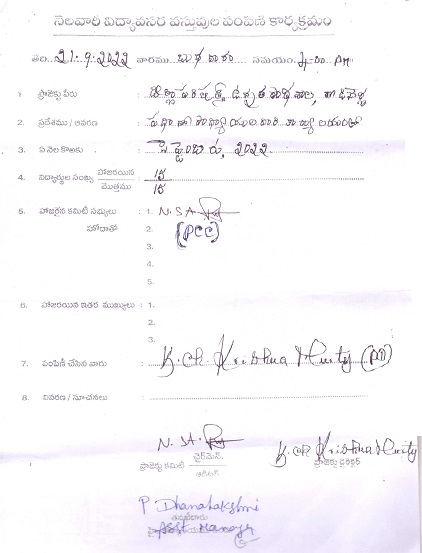 నెలవారీ విద్యావసర వస్తువుల పంపిణీ కార్యక్రమం
తేది. 21.9.2022 వారము బుధవారం సమయం 4-00 PM
1. ప్రాజెక్టు పేరు : జిల్లా పరిషత్ ఉన్నత పాఠశాల,
2. ప్రదేశము / ఆవరణ : ప్రధానోపాధ్యాయుల వారి కార్యాలయంలో
3. ఏ నెల కొరకు : సెప్టెంబరు, 2022
4. విద్యార్థుల సంఖ్య హాజరయిన 15
మొత్తము 15
5. హాజరైన కమిటీ సభ్యులు : 1. N. SA
హోదాతో 2. (PCC)
3.
4.
5.
6. హాజరయిన ఇతర ముఖ్యులు : 1.
2.
3.
7. పంపిణీ చేసిన వారు : K. Ch. Krishna Murty (PD)
8. వివరణ / సూచనలు :
N. SA
చైర్‌మెన్, K. Ch Krishna Murty
ప్రాజెక్టు కమిటీ ప్రాజెక్టు డైరెక్టర్
P Dhanalakshmi
Asst Manager